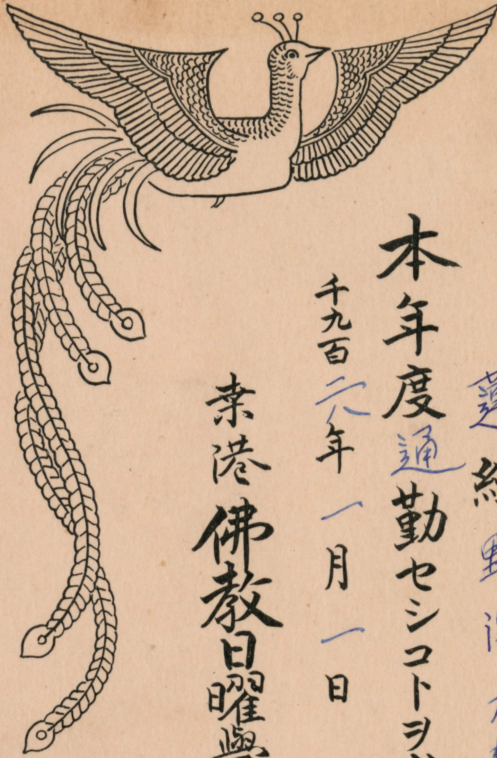 本年度通勤セシコトヲ
千九百二八年一月一日
桒港佛教日曜學